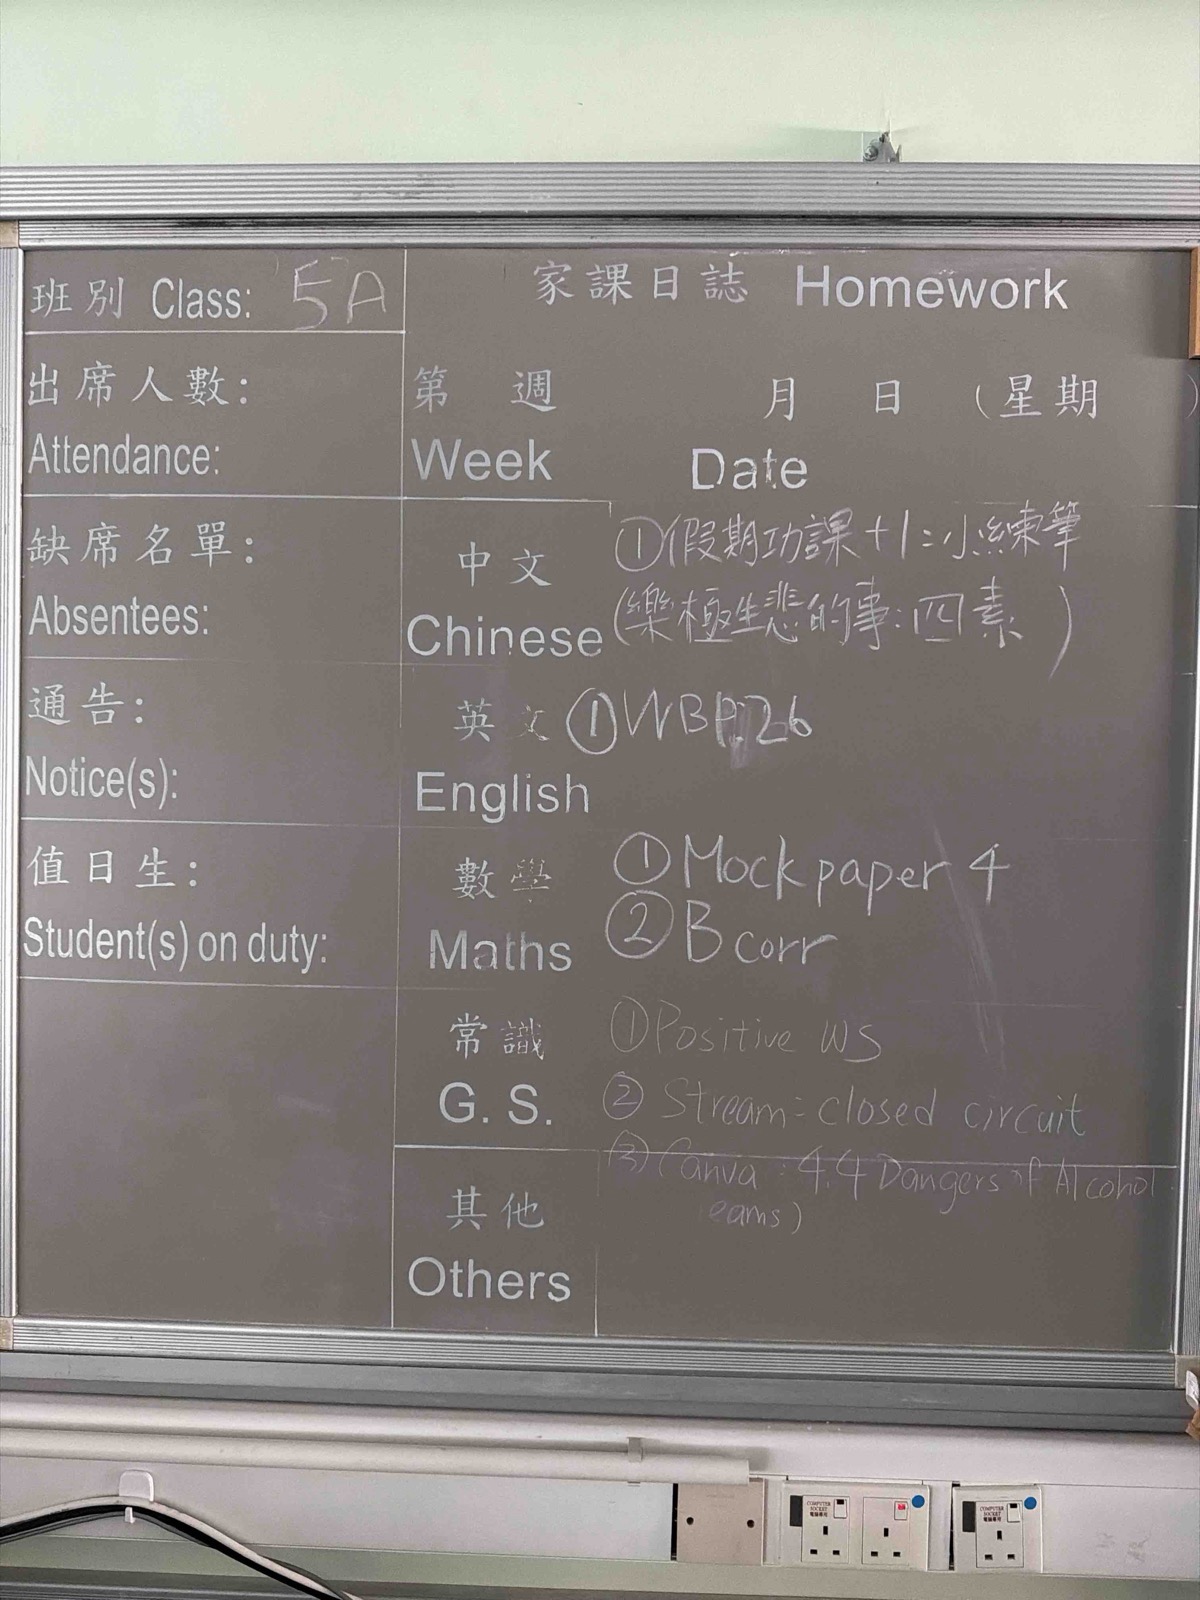 班別 Class: 5A
家課日誌 Homework
出席人數:
Attendance:
第 週 月 日 (星期 )
Week Date
缺席名單:
Absentees:
中文
Chinese
①假期功課+1:小練筆
(樂極生悲的事:四素)
通告:
Notice(s):
英文 ①WB P.26
English
值日生:
Student(s) on duty:
數學
Maths
①Mock paper 4
②B corr
常識
G. S.
①Positive WS
② Stream: closed circuit
③Canva: 4.4 Dangers of Alcohol
其他
Others
COMPUTER SOCKET
電腦專用
COMPUTER SOCKET
電腦專用